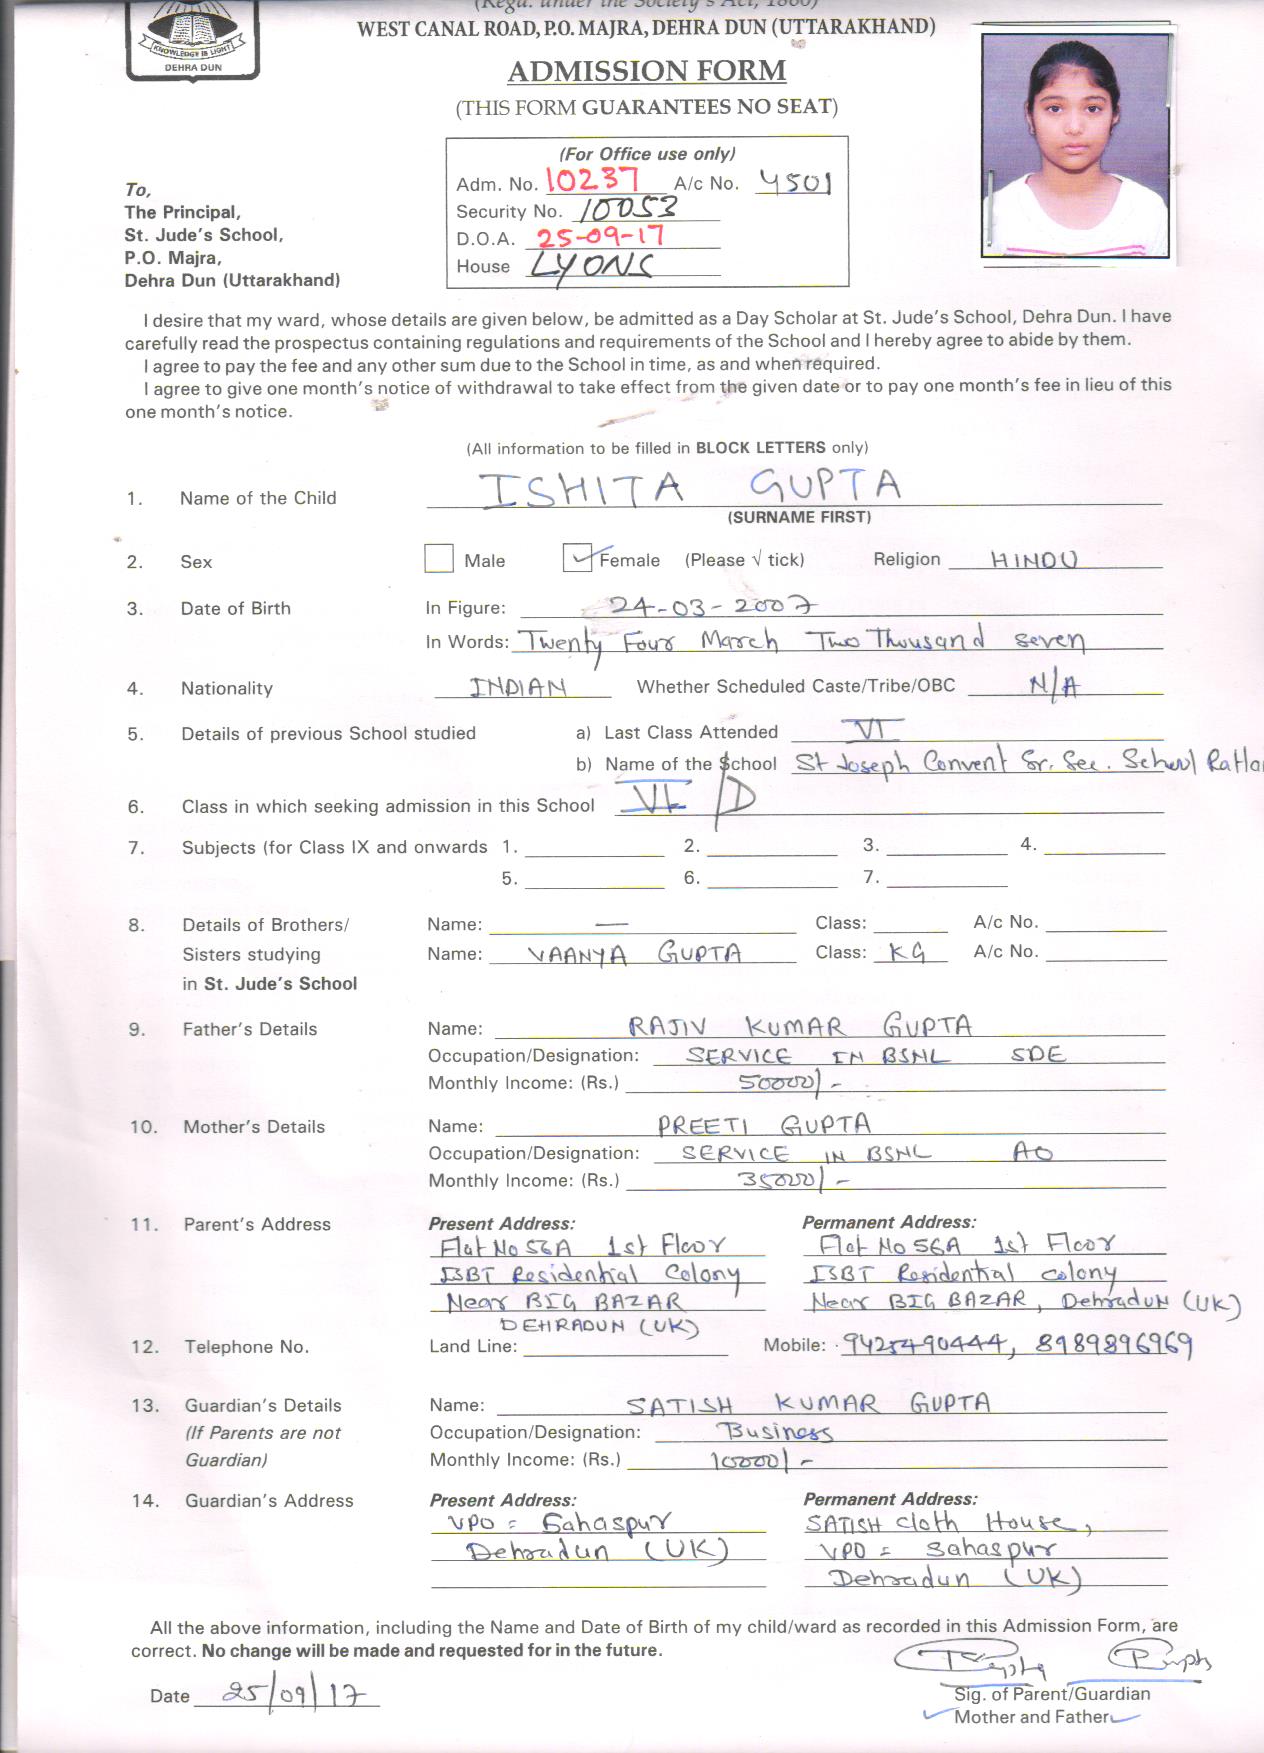 (Regd. under the Society's Act, 1860)
WEST CANAL ROAD, P.O. MAJRA, DEHRA DUN (UTTARAKHAND)
KNOWLEDGE IS LIGHT
DEHRA DUN
ADMISSION FORM
(THIS FORM GUARANTEES NO SEAT)
(For Office use only)
Adm. No. 10237 A/c No. 4501
Security No. 10053
D.O.A. 25-09-17
House LYONS
To,
The Principal,
St. Jude's School,
P.O. Majra,
Dehra Dun (Uttarakhand)
I desire that my ward, whose details are given below, be admitted as a Day Scholar at St. Jude's School, Dehra Dun. I have
carefully read the prospectus containing regulations and requirements of the School and I hereby agree to abide by them.
I agree to pay the fee and any other sum due to the School in time, as and when required.
I agree to give one month's notice of withdrawal to take effect from the given date or to pay one month's fee in lieu of this
one month's notice.
(All information to be filled in BLOCK LETTERS only)
1. Name of the Child ISHITA GUPTA
(SURNAME FIRST)
2. Sex Male ✓ Female (Please √ tick) Religion HINDU
3. Date of Birth In Figure: 24-03-2007
In Words: Twenty Four March Two Thousand Seven
4. Nationality INDIAN Whether Scheduled Caste/Tribe/OBC N/A
5. Details of previous School studied a) Last Class Attended VI
b) Name of the School St Joseph Convent Sr. Sec. School Ratla
6. Class in which seeking admission in this School VI D
7. Subjects (for Class IX and onwards 1. 2. 3. 4.
5. 6. 7.
8. Details of Brothers/ Name: — Class: A/c No.
Sisters studying Name: VAANYA GUPTA Class: KG A/c No.
in St. Jude's School
9. Father's Details Name: RAJIV KUMAR GUPTA
Occupation/Designation: SERVICE IN BSNL SDE
Monthly Income: (Rs.) 50000/-
10. Mother's Details Name: PREETI GUPTA
Occupation/Designation: SERVICE IN BSNL AO
Monthly Income: (Rs.) 35000/-
11. Parent's Address Present Address: Permanent Address:
Flat No 56A 1st Floor Flat No 56A 1st Floor
ISBT Residential Colony ISBT Residential colony
Near BIG BAZAR Near BIG BAZAR, Dehradun (UK)
DEHRADUN (UK)
12. Telephone No. Land Line: Mobile: 9425490444, 8989896969
13. Guardian's Details Name: SATISH KUMAR GUPTA
(If Parents are not Occupation/Designation: Business
Guardian) Monthly Income: (Rs.) 10000/-
14. Guardian's Address Present Address: Permanent Address:
VPO = Sahaspur SATISH Cloth House,
Dehradun (UK) VPO = Sahaspur
Dehradun (UK)
All the above information, including the Name and Date of Birth of my child/ward as recorded in this Admission Form, are
correct. No change will be made and requested for in the future.
Date 25/09/17
Sig. of Parent/Guardian
Mother and Father